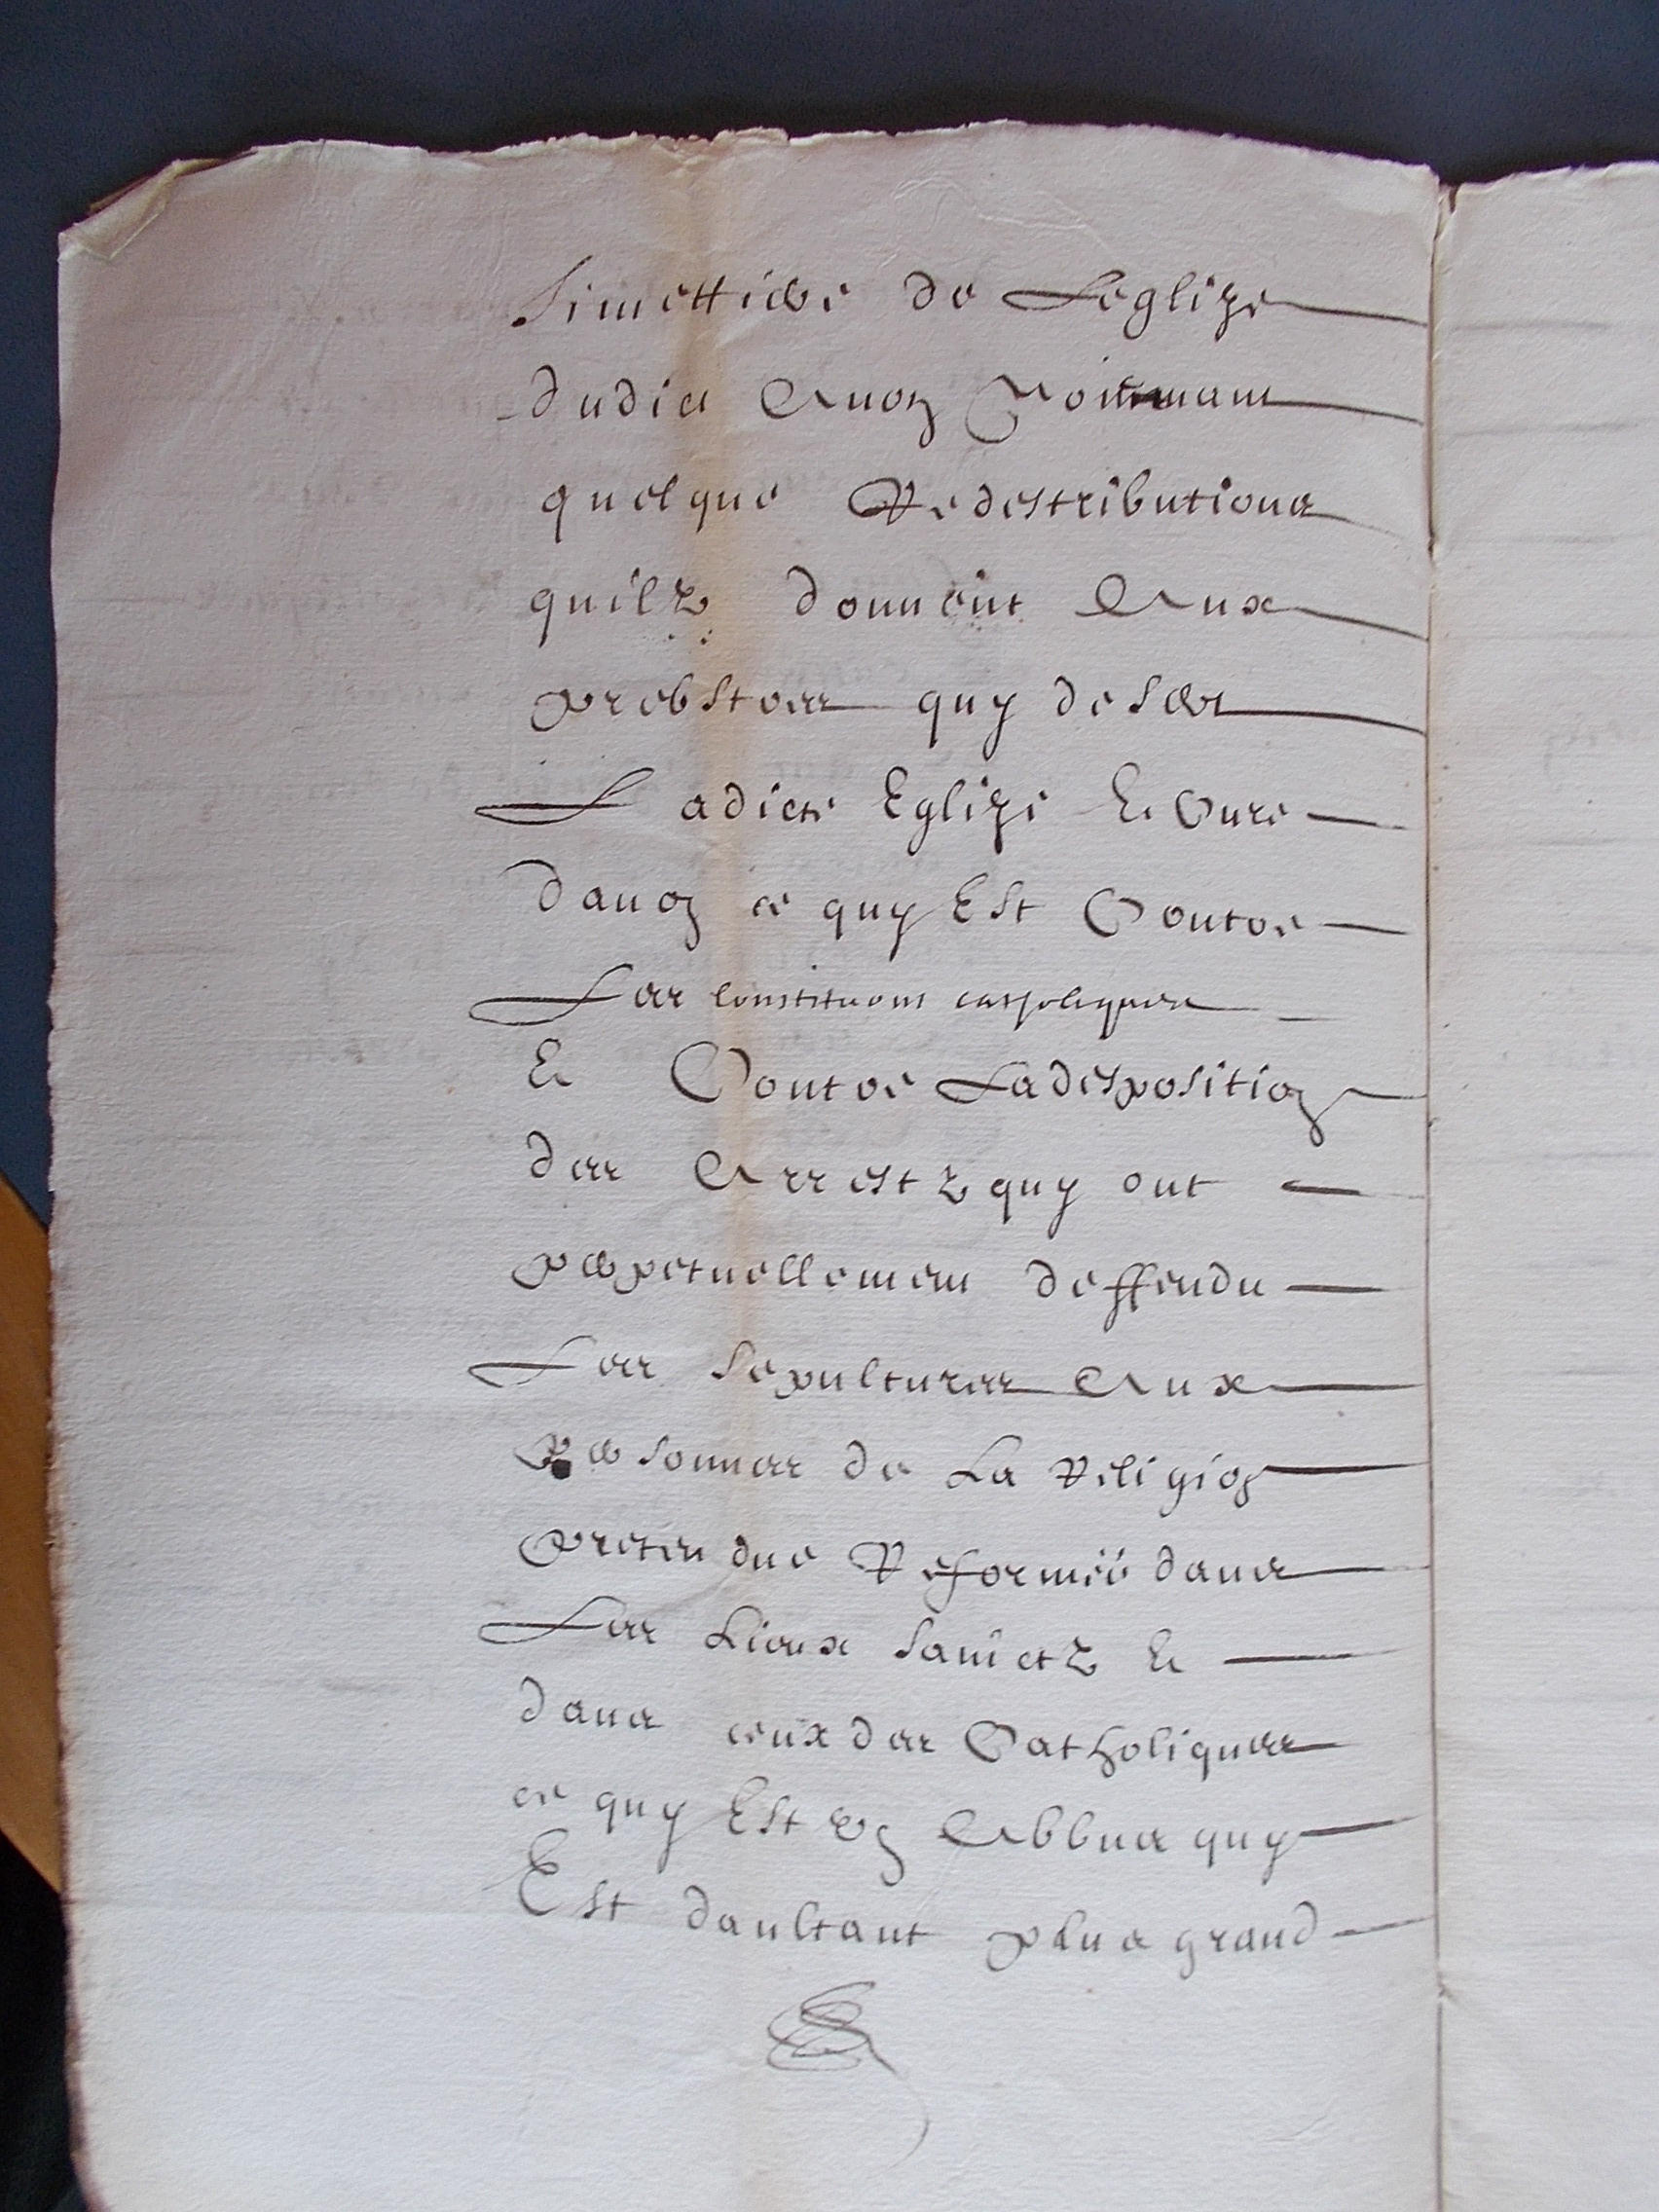 Simettiere de Leglize
dudict Anoy Moiennant
quelque Redestributions
quilz donnent Aux
prebstres quy deservent
Ladicte Eglize Et Cure
danoy ce quy Est Contre
Les constituons catholiques
Et Contre Ladisposition
des Arrestz quy ont
perpetuellement deffendu
Les Sepultures Aux
personnes de La Religion
pretendue Reformée dans
Les Lieux Sainctz Et
dans ceux des Catholiques
ce quy Est un Abbus quy
Est daultant plus grand